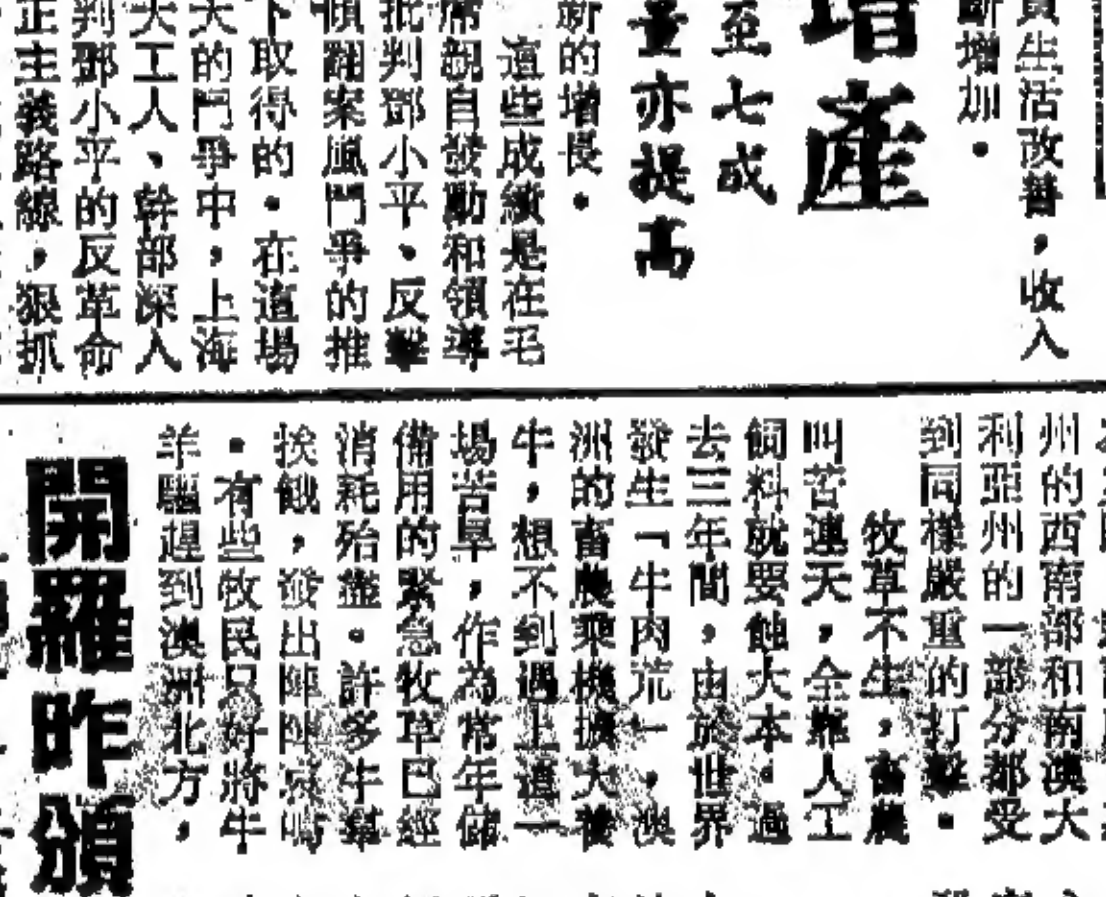 員生活改善，收入
斷增加。
增產
至七成
量亦提高
新的增長。
這些成績是在毛
席親自發動和領導
批判鄧小平、反擊
傾翻案風鬥爭的推
下取得的。在這場
大的鬥爭中，上海
大工人、幹部深入
判鄧小平的反革命
正主義路線，狠抓
州的西南部和南澳大
利亞州的一部分都受
到同樣嚴重的打擊。
牧草不生，畜農
叫苦連天，全靠人工
飼料就要蝕大本。過
去三年間，由於世界
發生「牛肉荒」，澳
洲的畜農乘機擴大養
牛，想不到遇上這一
場苦旱，作為常年儲
備用的緊急牧草已經
消耗殆盡。許多牛羣
挨餓，發出陣陣哀鳴
。有些牧民只好將牛
羊驅趕到澳洲北方，
開羅昨頒